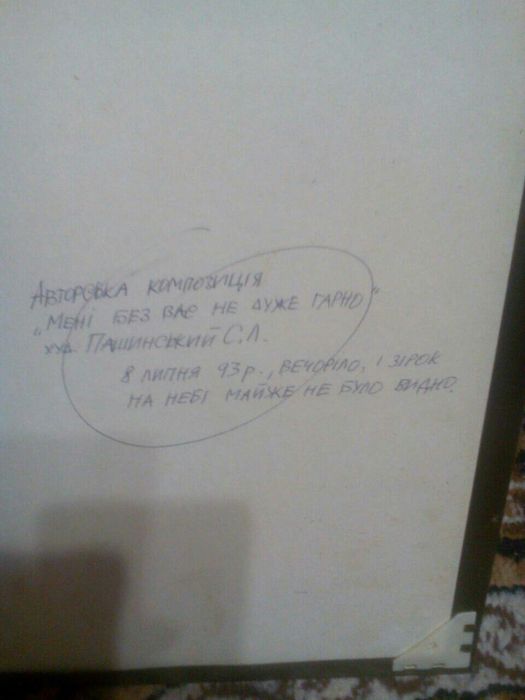 Авторська композиція
„Мені без Вас не дуже гарно"
худ. Пашинський С.Л.
8 липня 93р., вечоріло, і зірок
на небі майже не було видно.